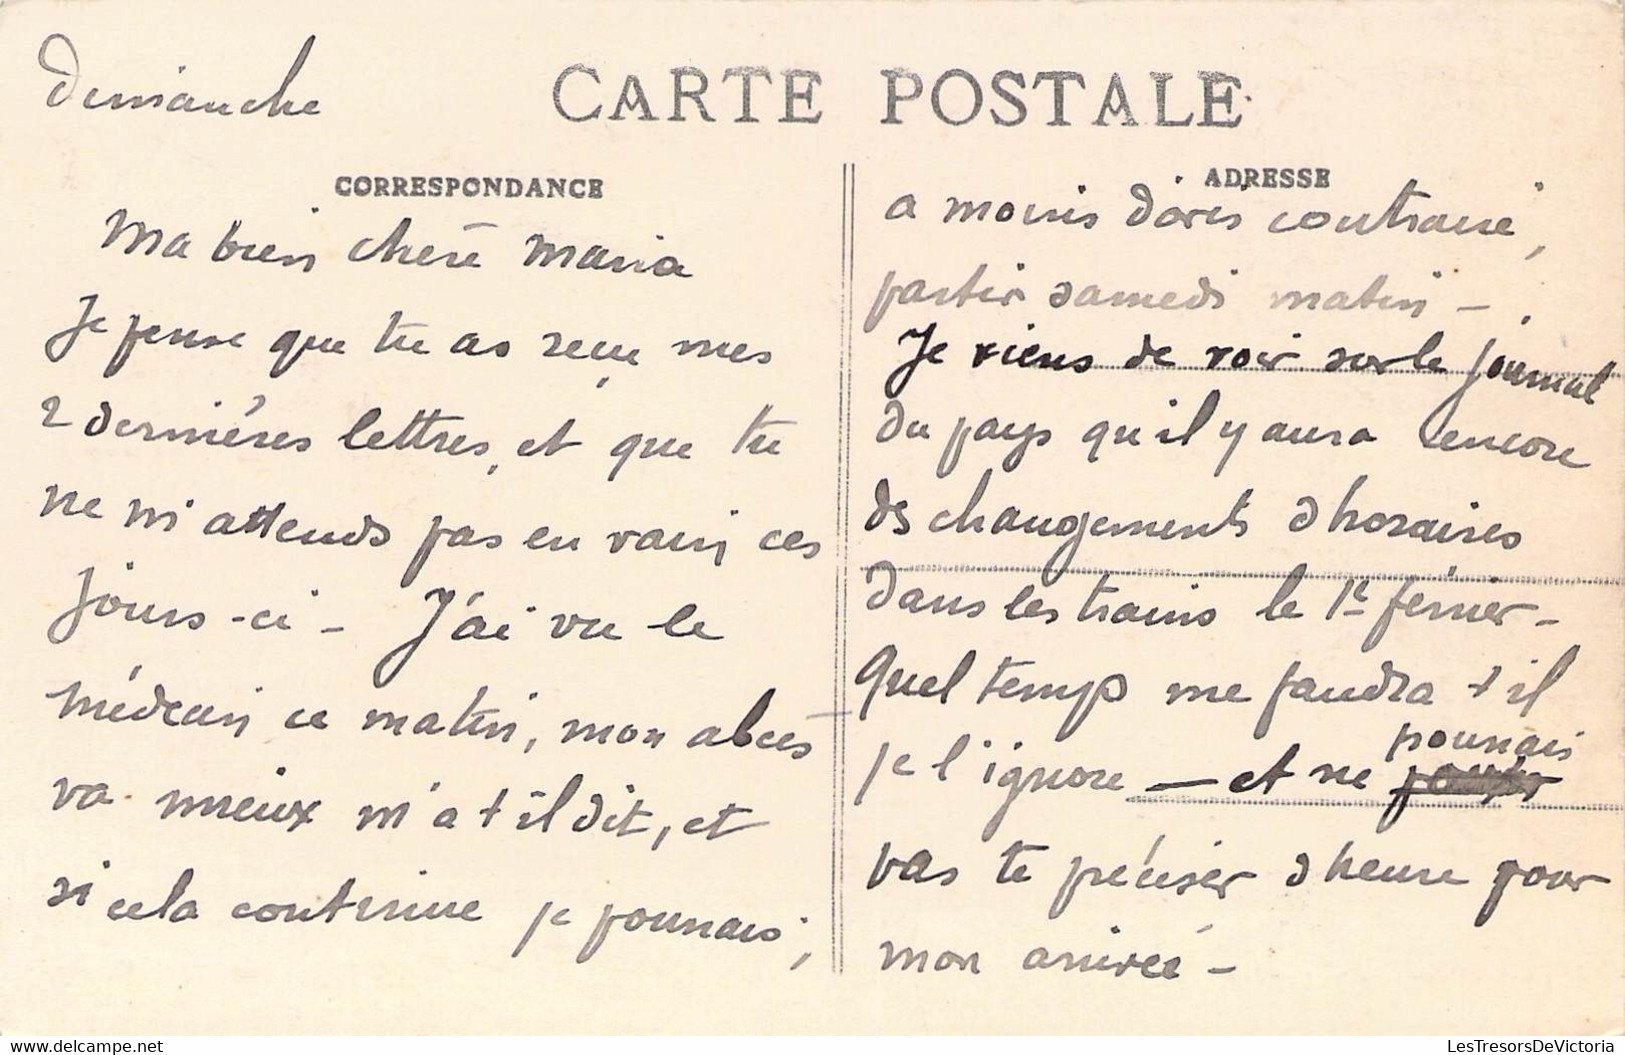 Dimanche
CARTE POSTALE
CORRESPONDANCE
Ma bien chère Maria
Je pense que tu as reçu mes
2 dernières lettres, et que tu
ne m'attends pas en vain ces
jours-ci - J'ai vu le
médecin ce matin, mon abcès
va mieux m'a t il dit, et
si cela continue je pourrais,
ADRESSE
a moins d'avis contraire,
partir samedi matin -
Je viens de voir sur le journal
du pays qu'il y aura encore
des changements d'horaires
dans les trains le 1er février -
Quel temps me faudra t il
je l'ignore - et ne pourrais
pas te préciser d'heure pour
mon arrivée -
delcampe.net
LesTresorsDeVictoria